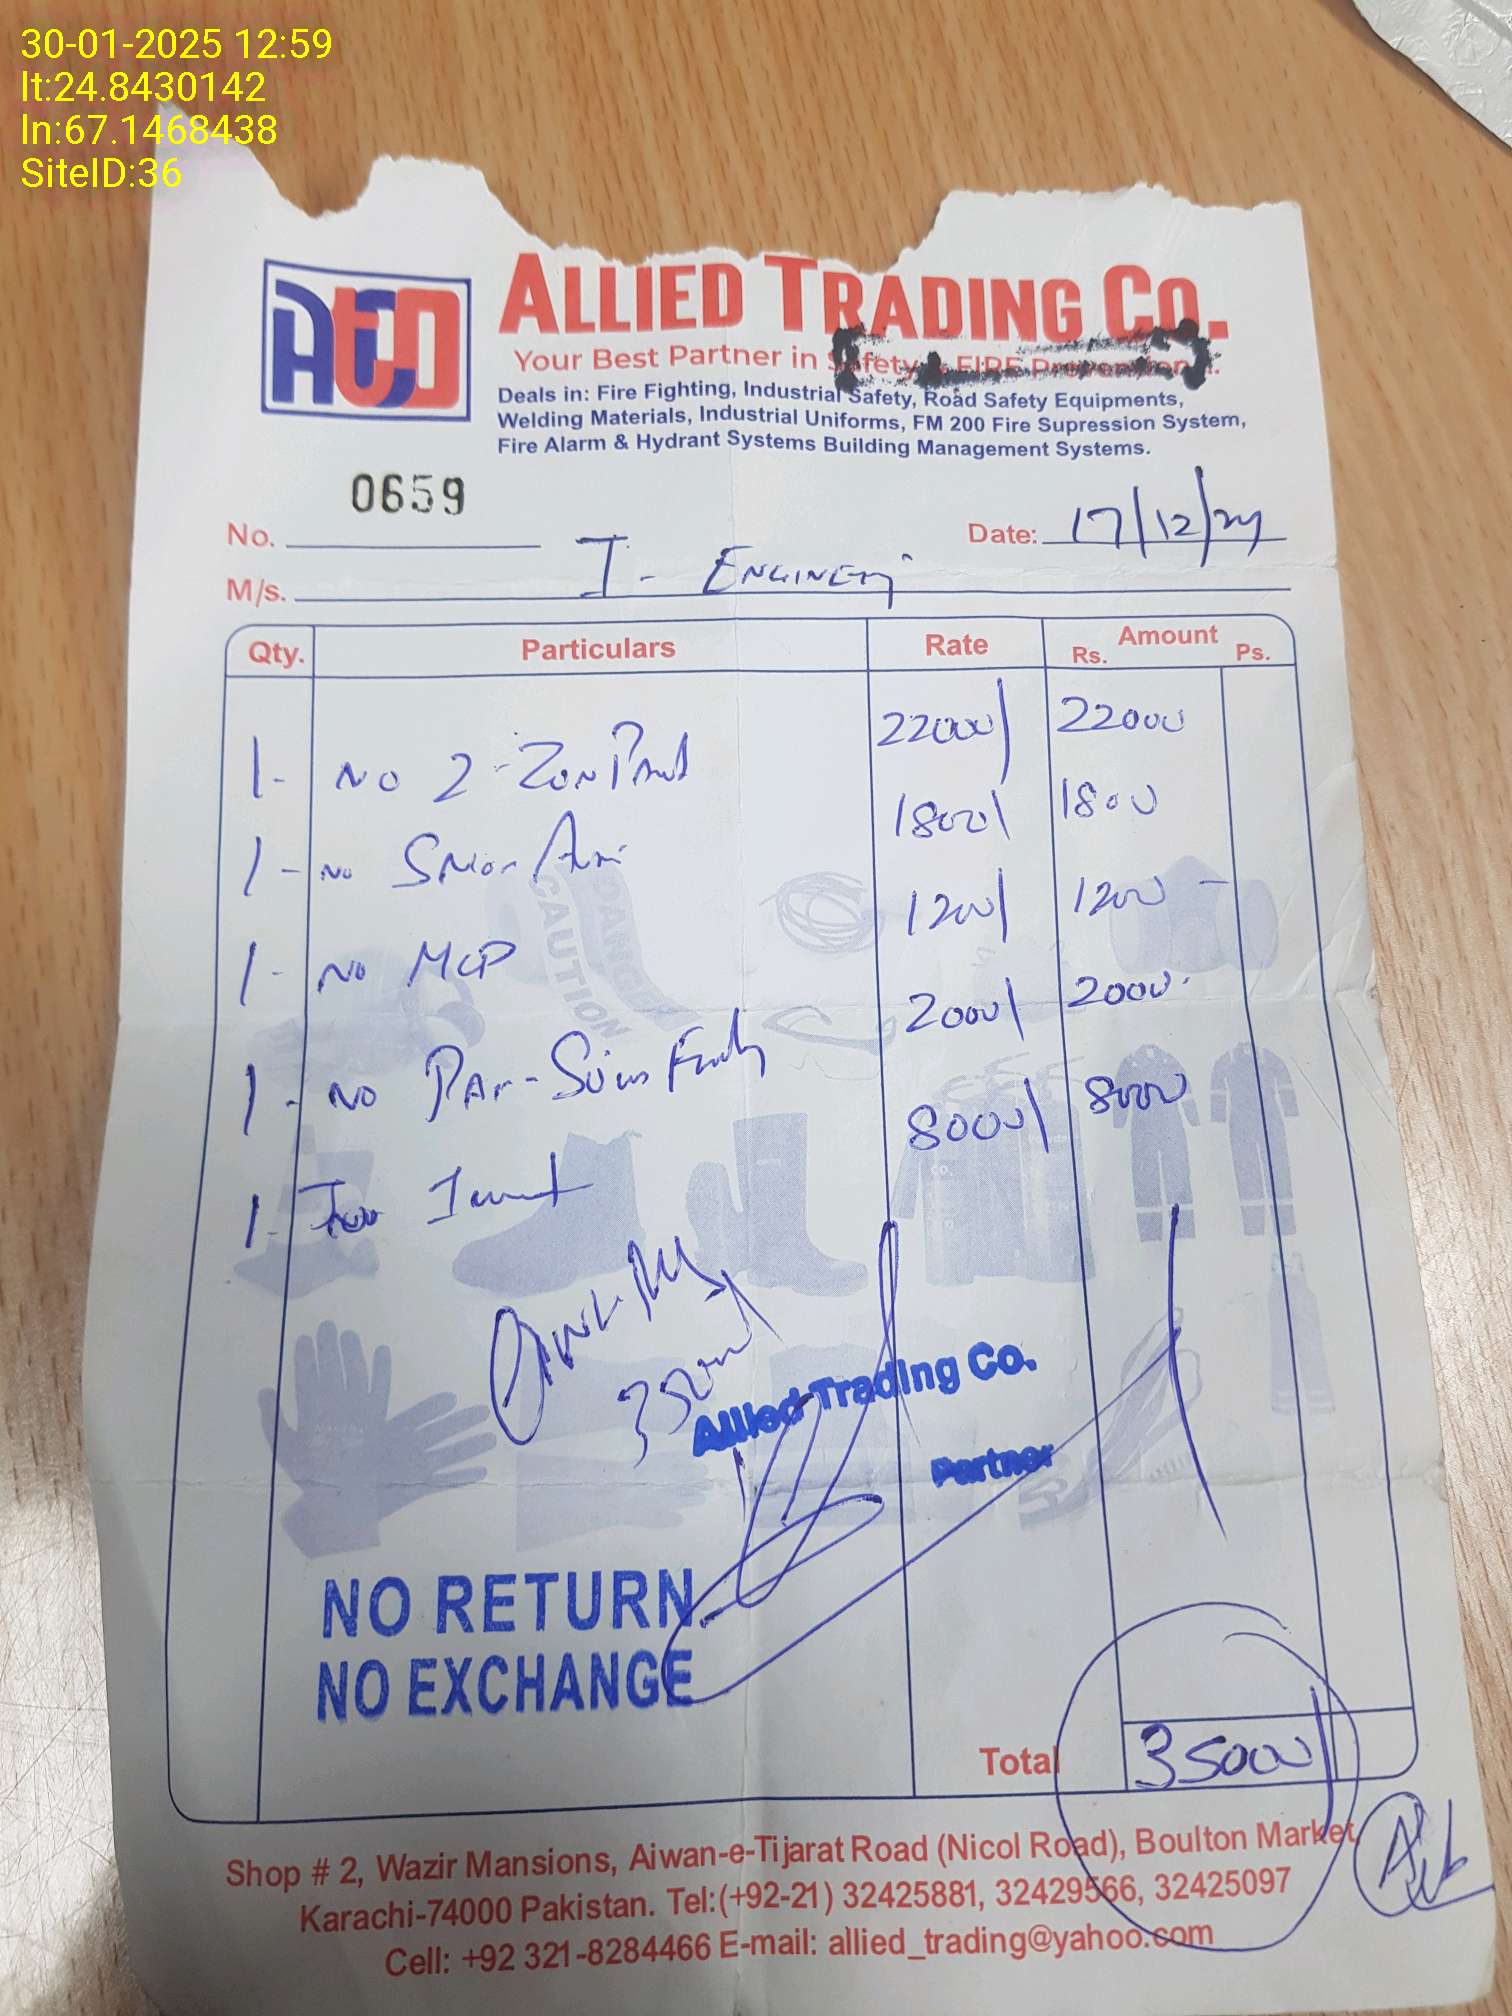 30-01-2025 12:59
lt:24.8430142
ln:67.1468438
SiteID:36
ATCO
ALLIED TRADING CO.
Your Best Partner in Safety & FIRE Prevention
Deals in: Fire Fighting, Industrial Safety, Road Safety Equipments,
Welding Materials, Industrial Uniforms, FM 200 Fire Supression System,
Fire Alarm & Hydrant Systems Building Management Systems.
0659
No.
Date: 17/12/24
M/s. I-
Qty. Particulars Rate Amount
Rs. Ps.
1- NO 2-Zon 22000/ 22000
1- NO 1800/ 1800
1- NO MCP 1200/ 1200 -
1- NO 2000/ 2000
1- 8000/ 8000
DANGER
CAUTION
35000/
Allied Trading Co.
Partner
NO RETURN
NO EXCHANGE
Total 35000/
Shop # 2, Wazir Mansions, Aiwan-e-Tijarat Road (Nicol Road), Boulton Market,
Karachi-74000 Pakistan. Tel:(+92-21) 32425881, 32429566, 32425097
Cell: +92 321-8284466 E-mail: allied_trading@yahoo.com